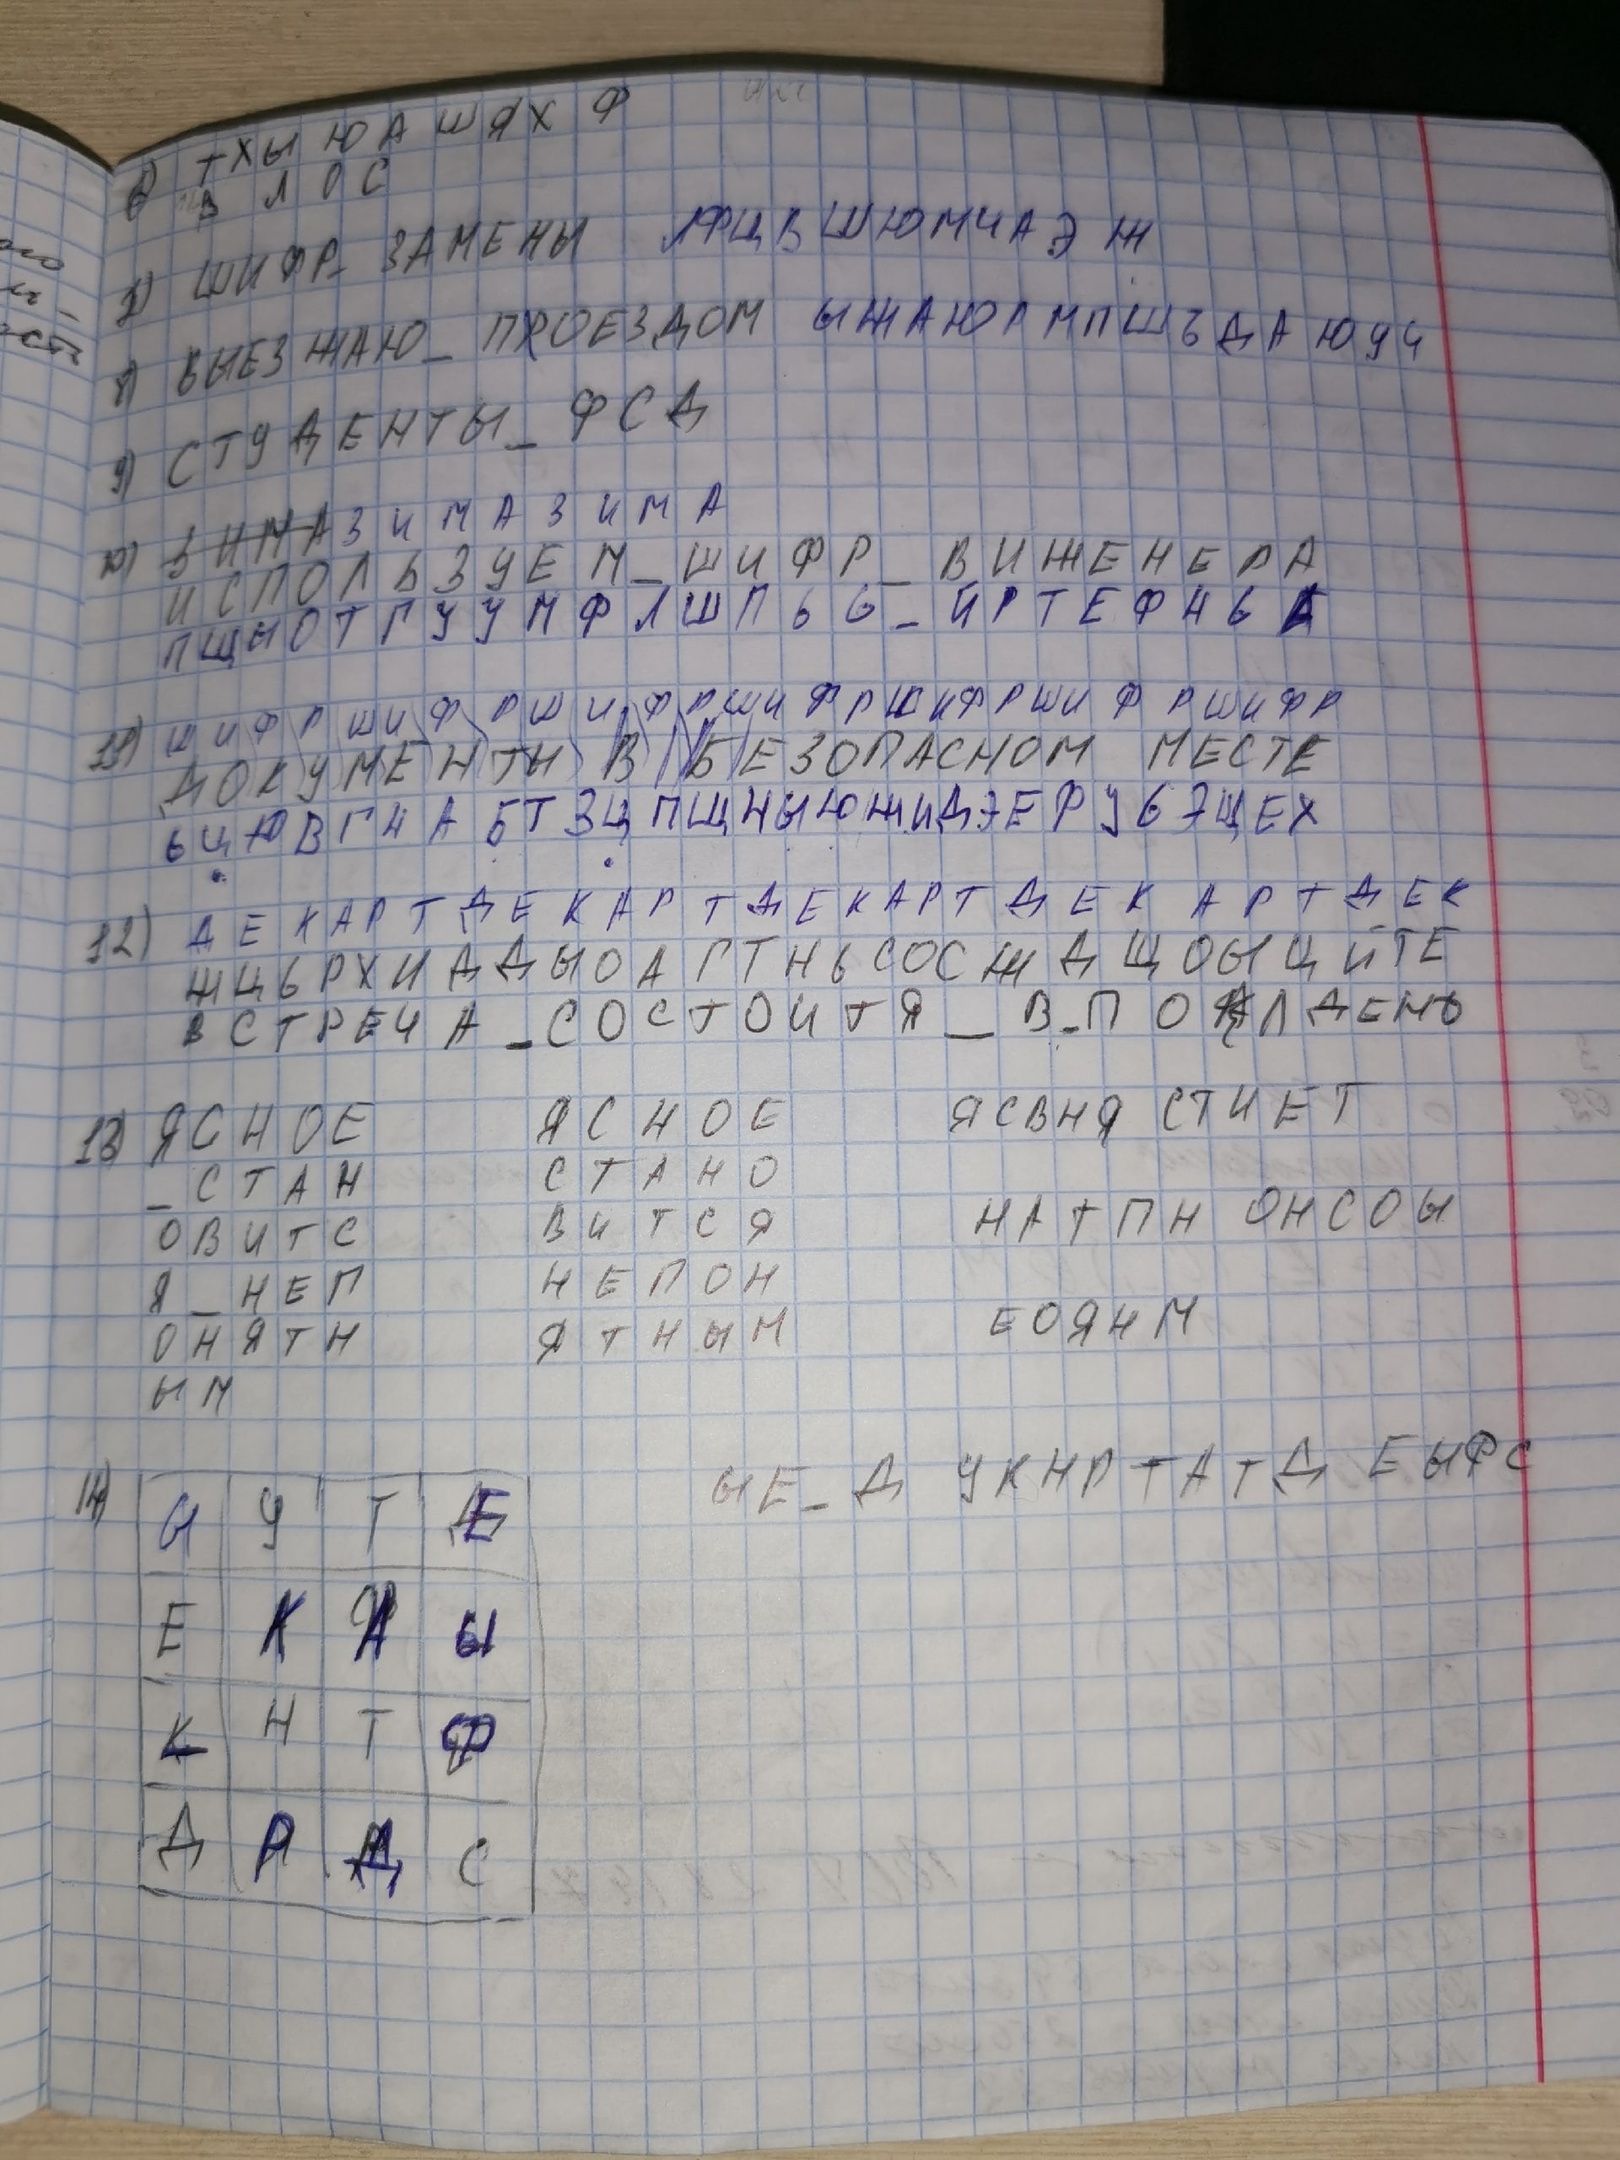 6) ТХЫЮАШЯХФ
В ЛОС
7) ШИФР_ ЗАМЕНЫ ЛФЦВШЮМЧАЭЖ
8) ВЫЕЗЖАЮ_ ПРОЕЗДОМ ЫЖАЮРМПШЪДАЮУЧ
9) СТУДЕНТЫ_ФСД
10) ЗИМАЗИМАЗИМА
ИСПОЛЬЗУЕМ_ШИФР_ВИЖЕНЕРА
ПЩЫОТГУУМФЛШПЬБ_ЙРТЕФНЬА
11) ШИФРШИФРШИФРШИФРШИФРШИФРШИФР
ДОКУМЕНТЫ В БЕЗОПАСНОМ МЕСТЕ
ЬЦЮВГНАБТЗЦПЩНЫЮЖИДЭЕРУБЭЩЕХ
12) ДЕКАРТДЕКАРТДЕКАРТДЕКАРТДЕК
ЖЦЬРХИДДЫОАГТНЬСОСЖДЩОЫЦЙТЕ
ВСТРЕЧА_СОСТОИТЯ_В_ПОЛДЕНЬ
13) ЯСНОЕ ЯСНОЕ ЯСВНЯ СТИЕТ
_СТАН СТАНО
ОВИТС ВИТСЯ НАТПН ОНСОЫ
Я_НЕП НЕПОН
ОНЯТН ЯТНЫМ ЕОЯНМ
ЫМ
14) ЫЕ_Д УКНРТАТД ЕЫФС
Ы У Т Е
Е К А Ы
К Н Т Ф
Д Р Д С